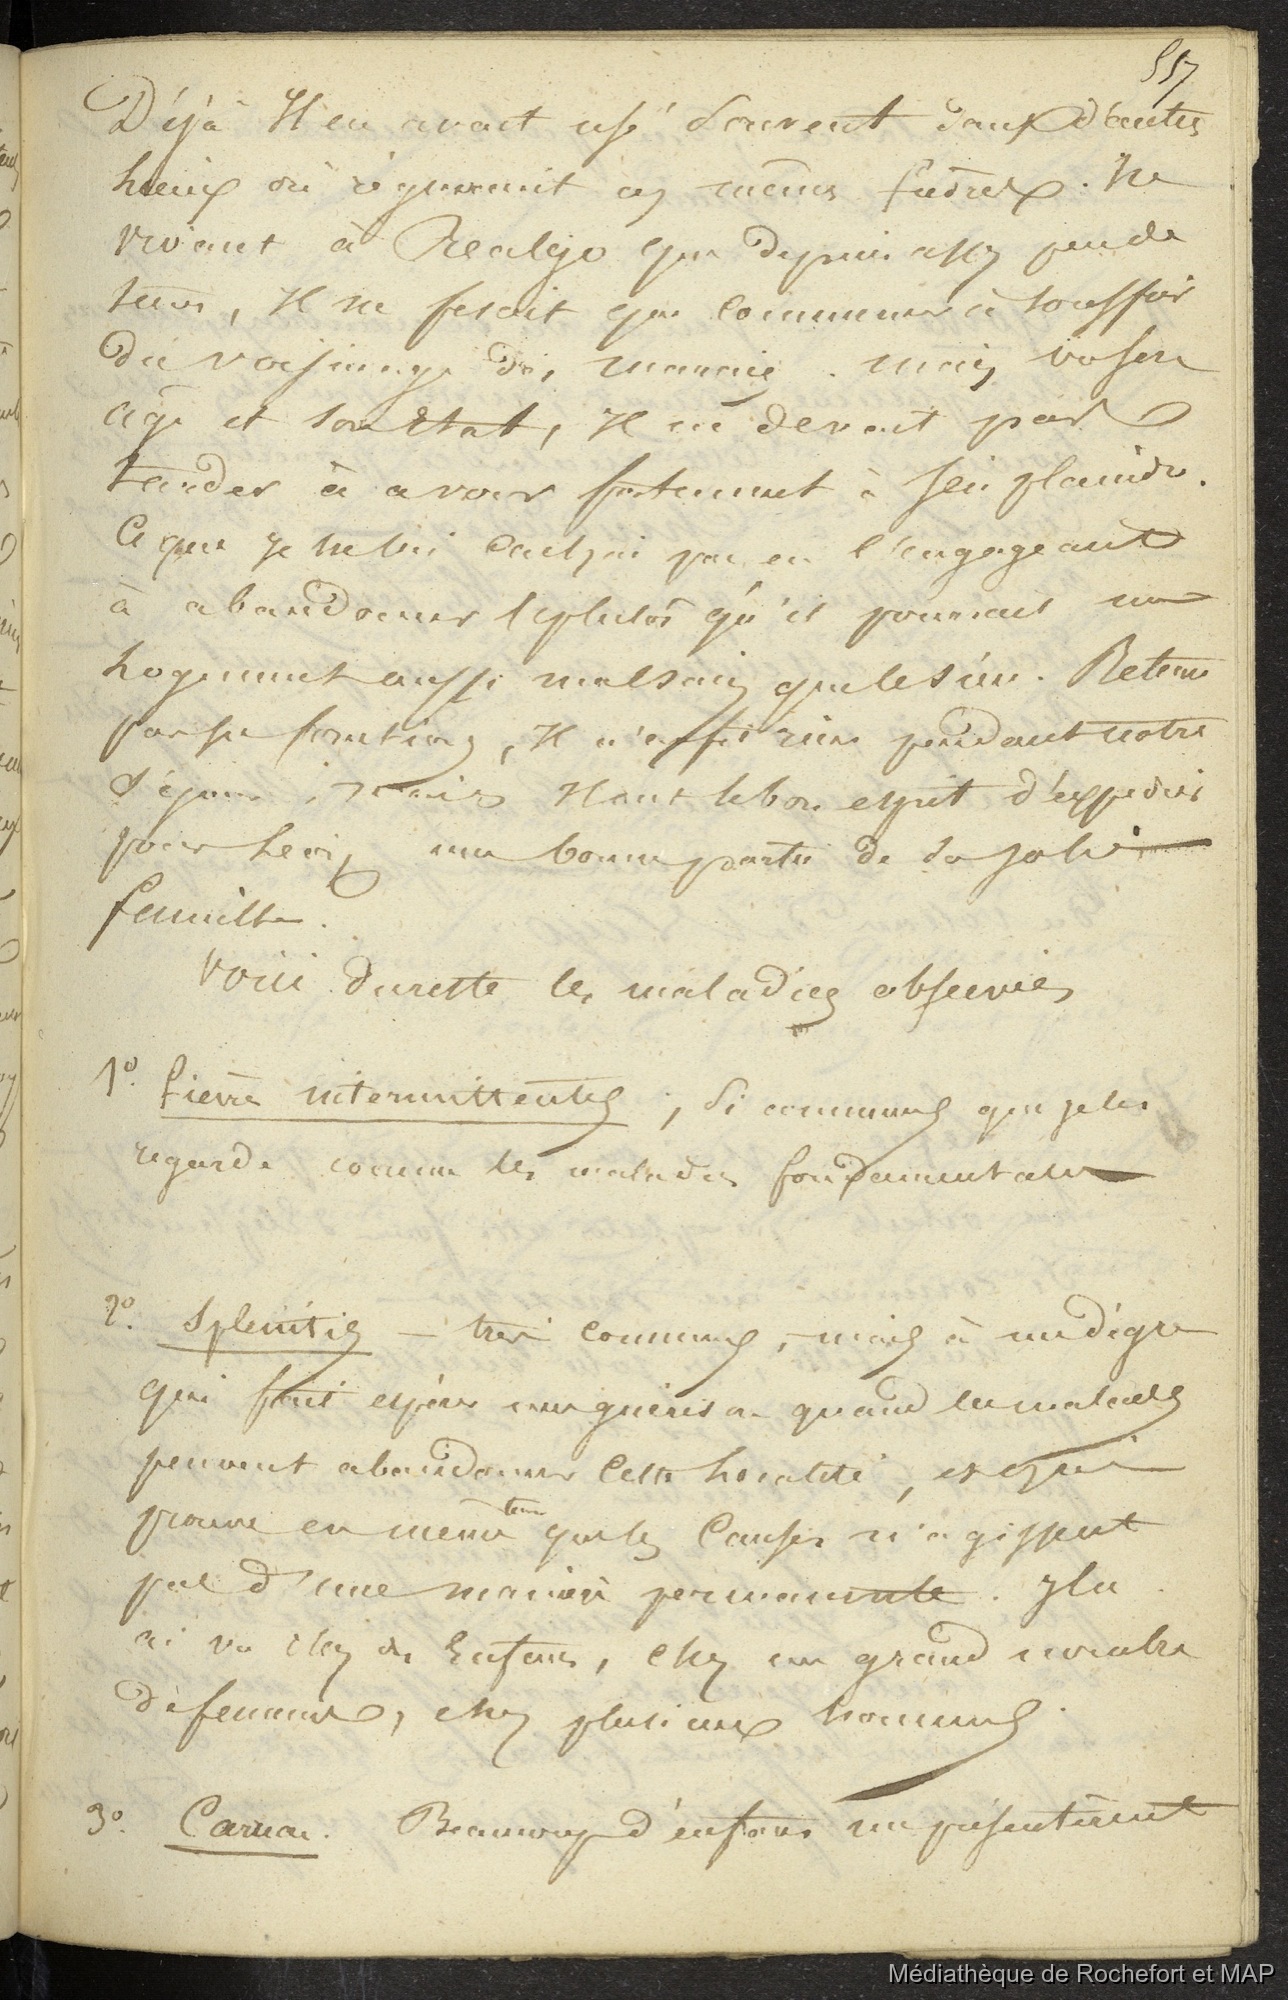 557
Déjà Il en avait usé souvent dans d'autres
lieux où régnaient ces mêmes fièvres. Ne
vivant à Realejo que depuis assez peu de
tems, Il ne fesait que commencer à souffrir
du voisinage des marais. mais vu son
âge et son Etat, Il ne devait pas
tarder à avoir fortement à s'en plaindre.
Ce que Je ne lui cachai pas en l'engageant
à abandonner le plutôt qu'il pourrait un
logement aussi malsain que le sien. Retenu
par ses fonctions, Il n'en fit rien pendant notre
séjour; mais Il eut le bon esprit d'expédier
pour Léon une bonne partie de sa jolie
famille.
Voici du reste les maladies observées
1º. fievres intermittentes, si communes que je les
regarde comme les maladies fondamentales
2º. Splénites — très communes, mais à un dégré
qui fait espérer une guérison quand les malades
peuvent abandonner cette localité, ce qui
prouve en même tems que les Causes n'agissent
pas d'une manière permanente. Je les
ai vu chez des Enfans, chez un grand nombre
de femmes, chez plusieurs hommes.
3º. Carreau. Beaucoup d'enfans me présentèrent
Médiathèque de Rochefort et MAP